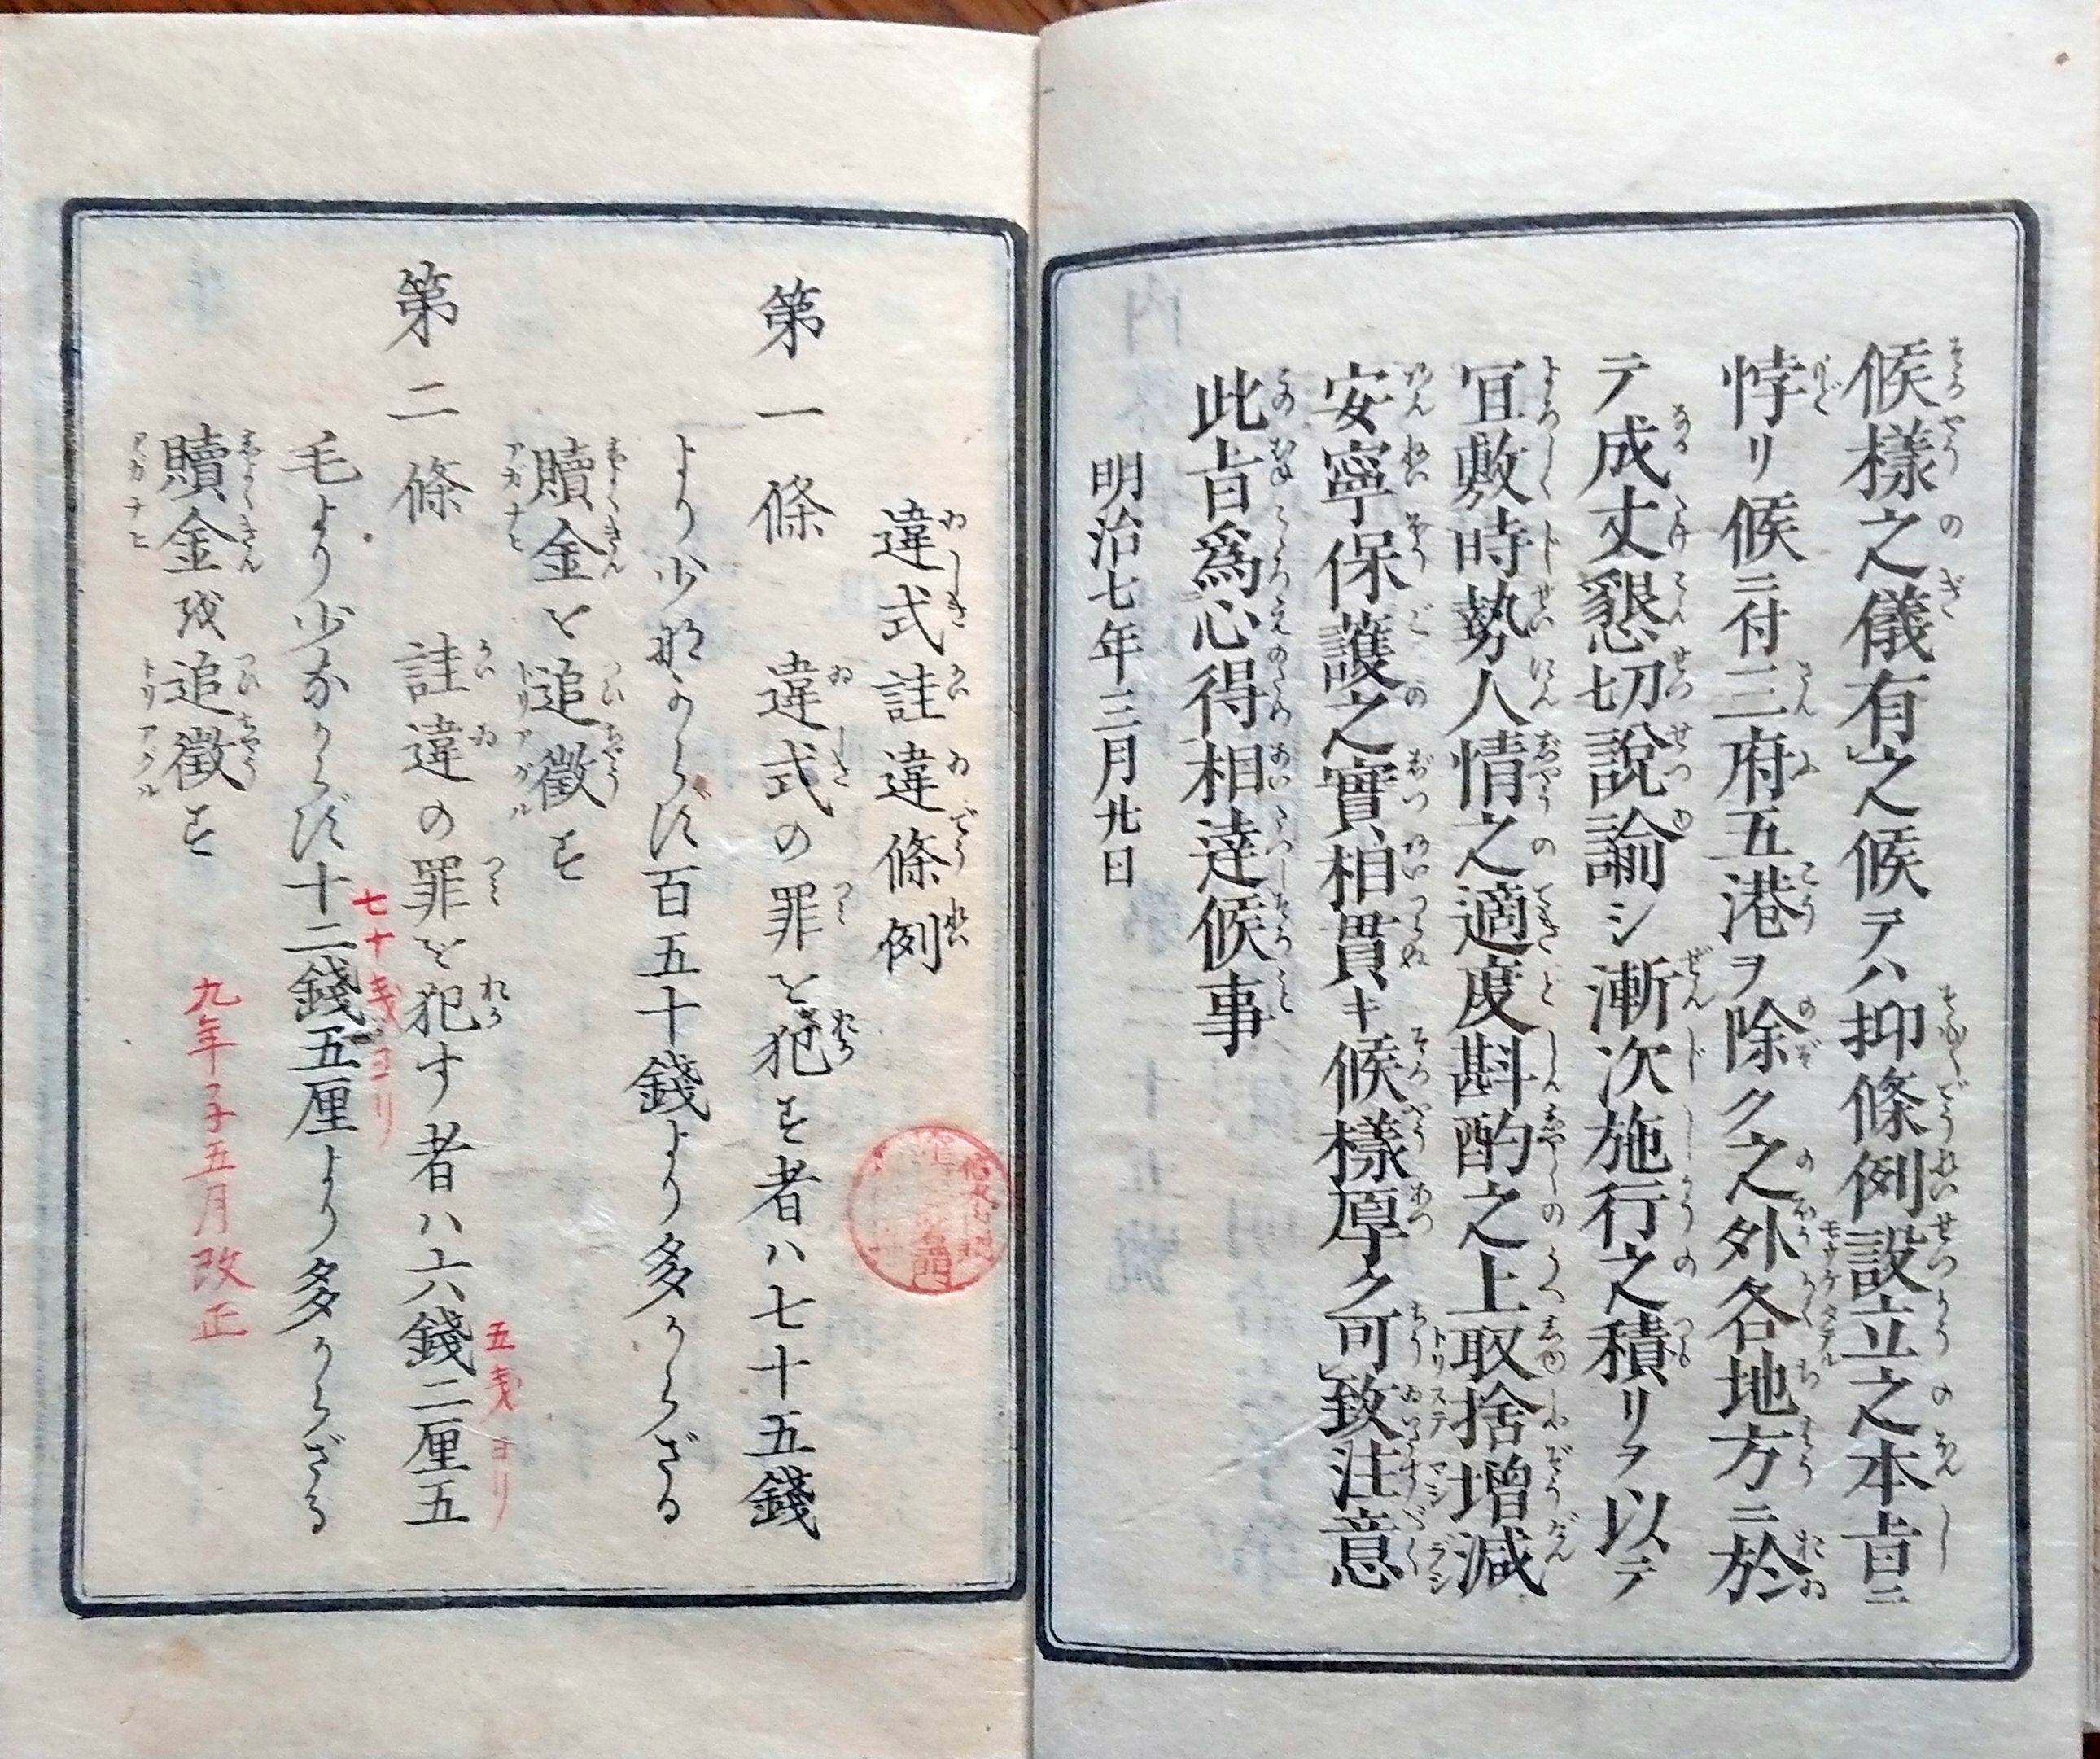 候樣之儀有之候テハ抑條例設立之本旨ニ
悖リ候ニ付三府五港ヲ除ク之外各地方ニ於
テ成丈懇切說諭シ漸次施行之積リヲ以テ
宜敷時勢人情之適度斟酌之上取捨增減
安寧保護之實相貫キ候樣厚ク可致注意
此旨爲心得相達候事
明治七年三月廿日
違式詿違條例
第一條 違式の罪を犯す者ハ七十五錢
より少なからず百五十錢より多からざる
贖金を追徵す
第二條 詿違の罪を犯す者ハ六錢二厘五
五戔ヨリ
毛より少なからず十二錢五厘より多からざる
七十戔ヨリ
贖金を追徵す
九年子五月改正